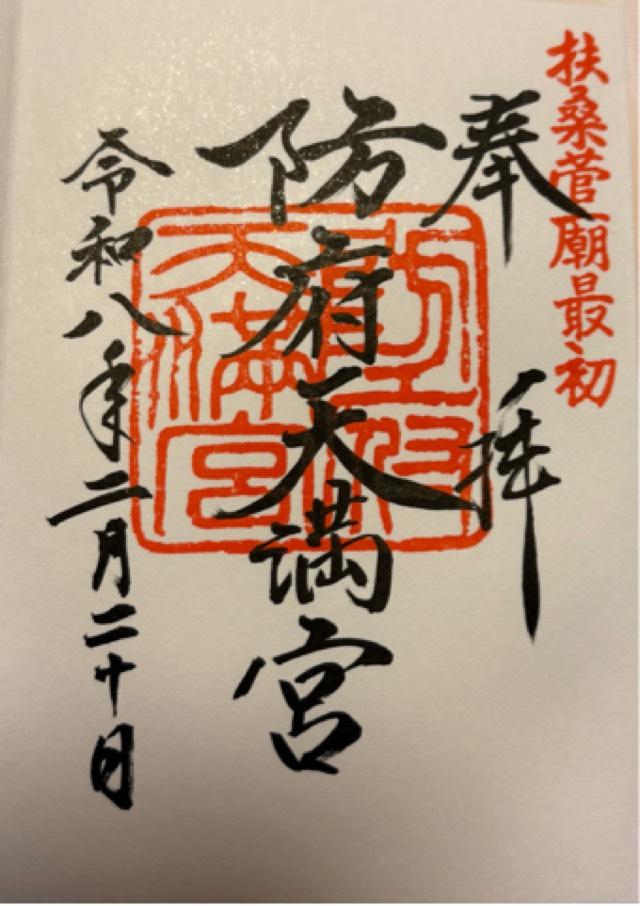 扶桑菅廟最初
奉拝
防府天満宮
防府天満宮
令和八年二月二十日